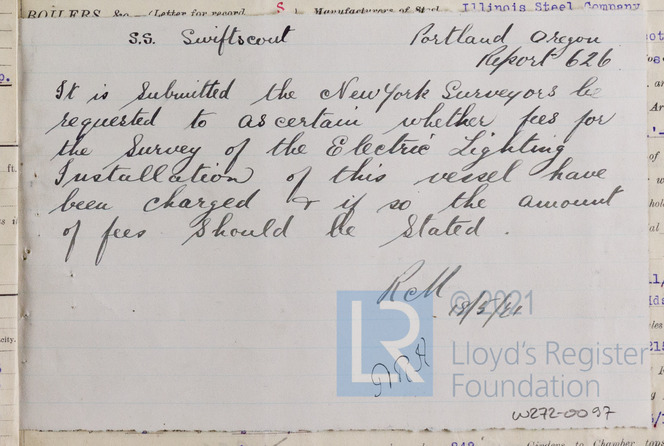 BOILERS, &c.—(Letter for record S ) Manufacturers of Steel Illinois Steel Company
S.S. Swiftscout Portland Oregon
Report 626
It is submitted the New York Surveyors be
requested to ascertain whether fees for
the Survey of the Electric Lighting
Installation of this vessel have
been charged & if so the amount
of fees should be stated.
RcM
18/5/21
© 2021
LR
Lloyd's Register
Foundation
W272-0097